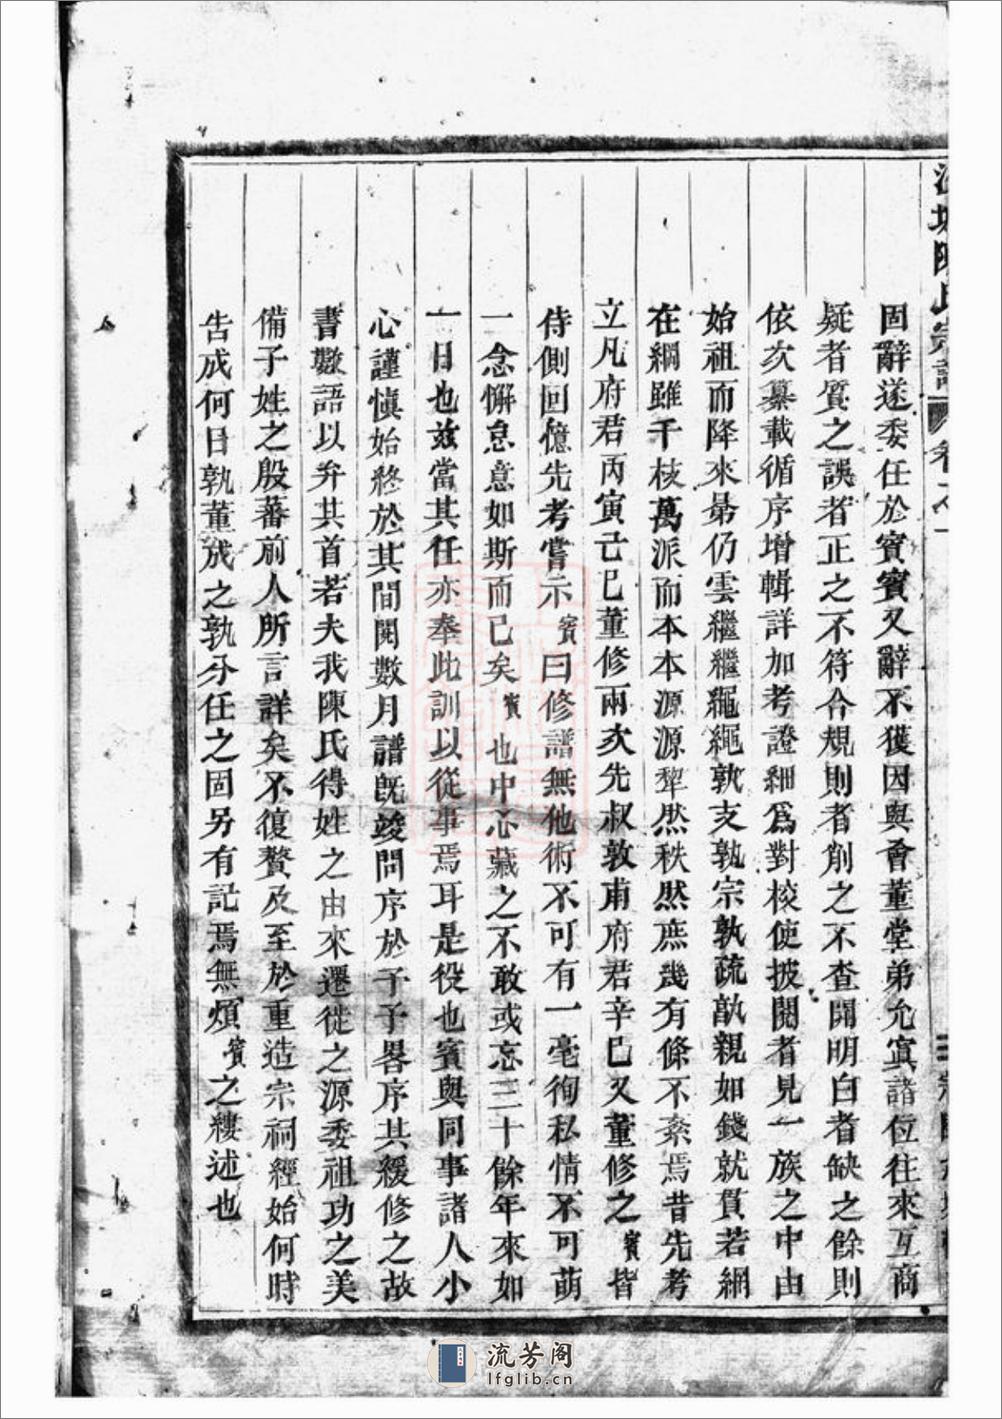 陳氏宗譜
固辭遂委任於賓賓又辭不獲因與會董堂弟允寅諸位往來互商
疑者質之誤者正之不符合規則者削之不查開明白者缺之餘則
依次纂載循序增輯詳加考證細爲對校使披閱者見一族之中由
始祖而降來昴仍雲繼繼繩繩孰支孰宗孰疏孰親如錢就貫若網
在綱雖千枝萬派而本本源源犁然秩然庶幾有條不紊焉昔先考
立凡府君丙寅己巳董修兩次先叔敦甫府君辛巳又董修之賓皆
侍側回憶先考嘗示賓曰修譜無他術不可有一毫徇私情不可萌
一念懈怠意如斯而已矣賓 也中心藏之不敢或忘三十餘年來如
一日也兹當其任亦奉此訓以從事焉耳是役也賓與同事諸人小
心謹慎始終於其間閱數月譜旣竣問序於予予畧序其緩修之故
書數語以弁其首若夫我陳氏得姓之由來遷徙之源委祖功之美
備子姓之殷蕃前人所言詳矣不復贅及至於重造宗祠經始何時
告成何日孰董成之孰分任之固另有記焉無煩賓之縷述也
流芳阁
lfglib.cn